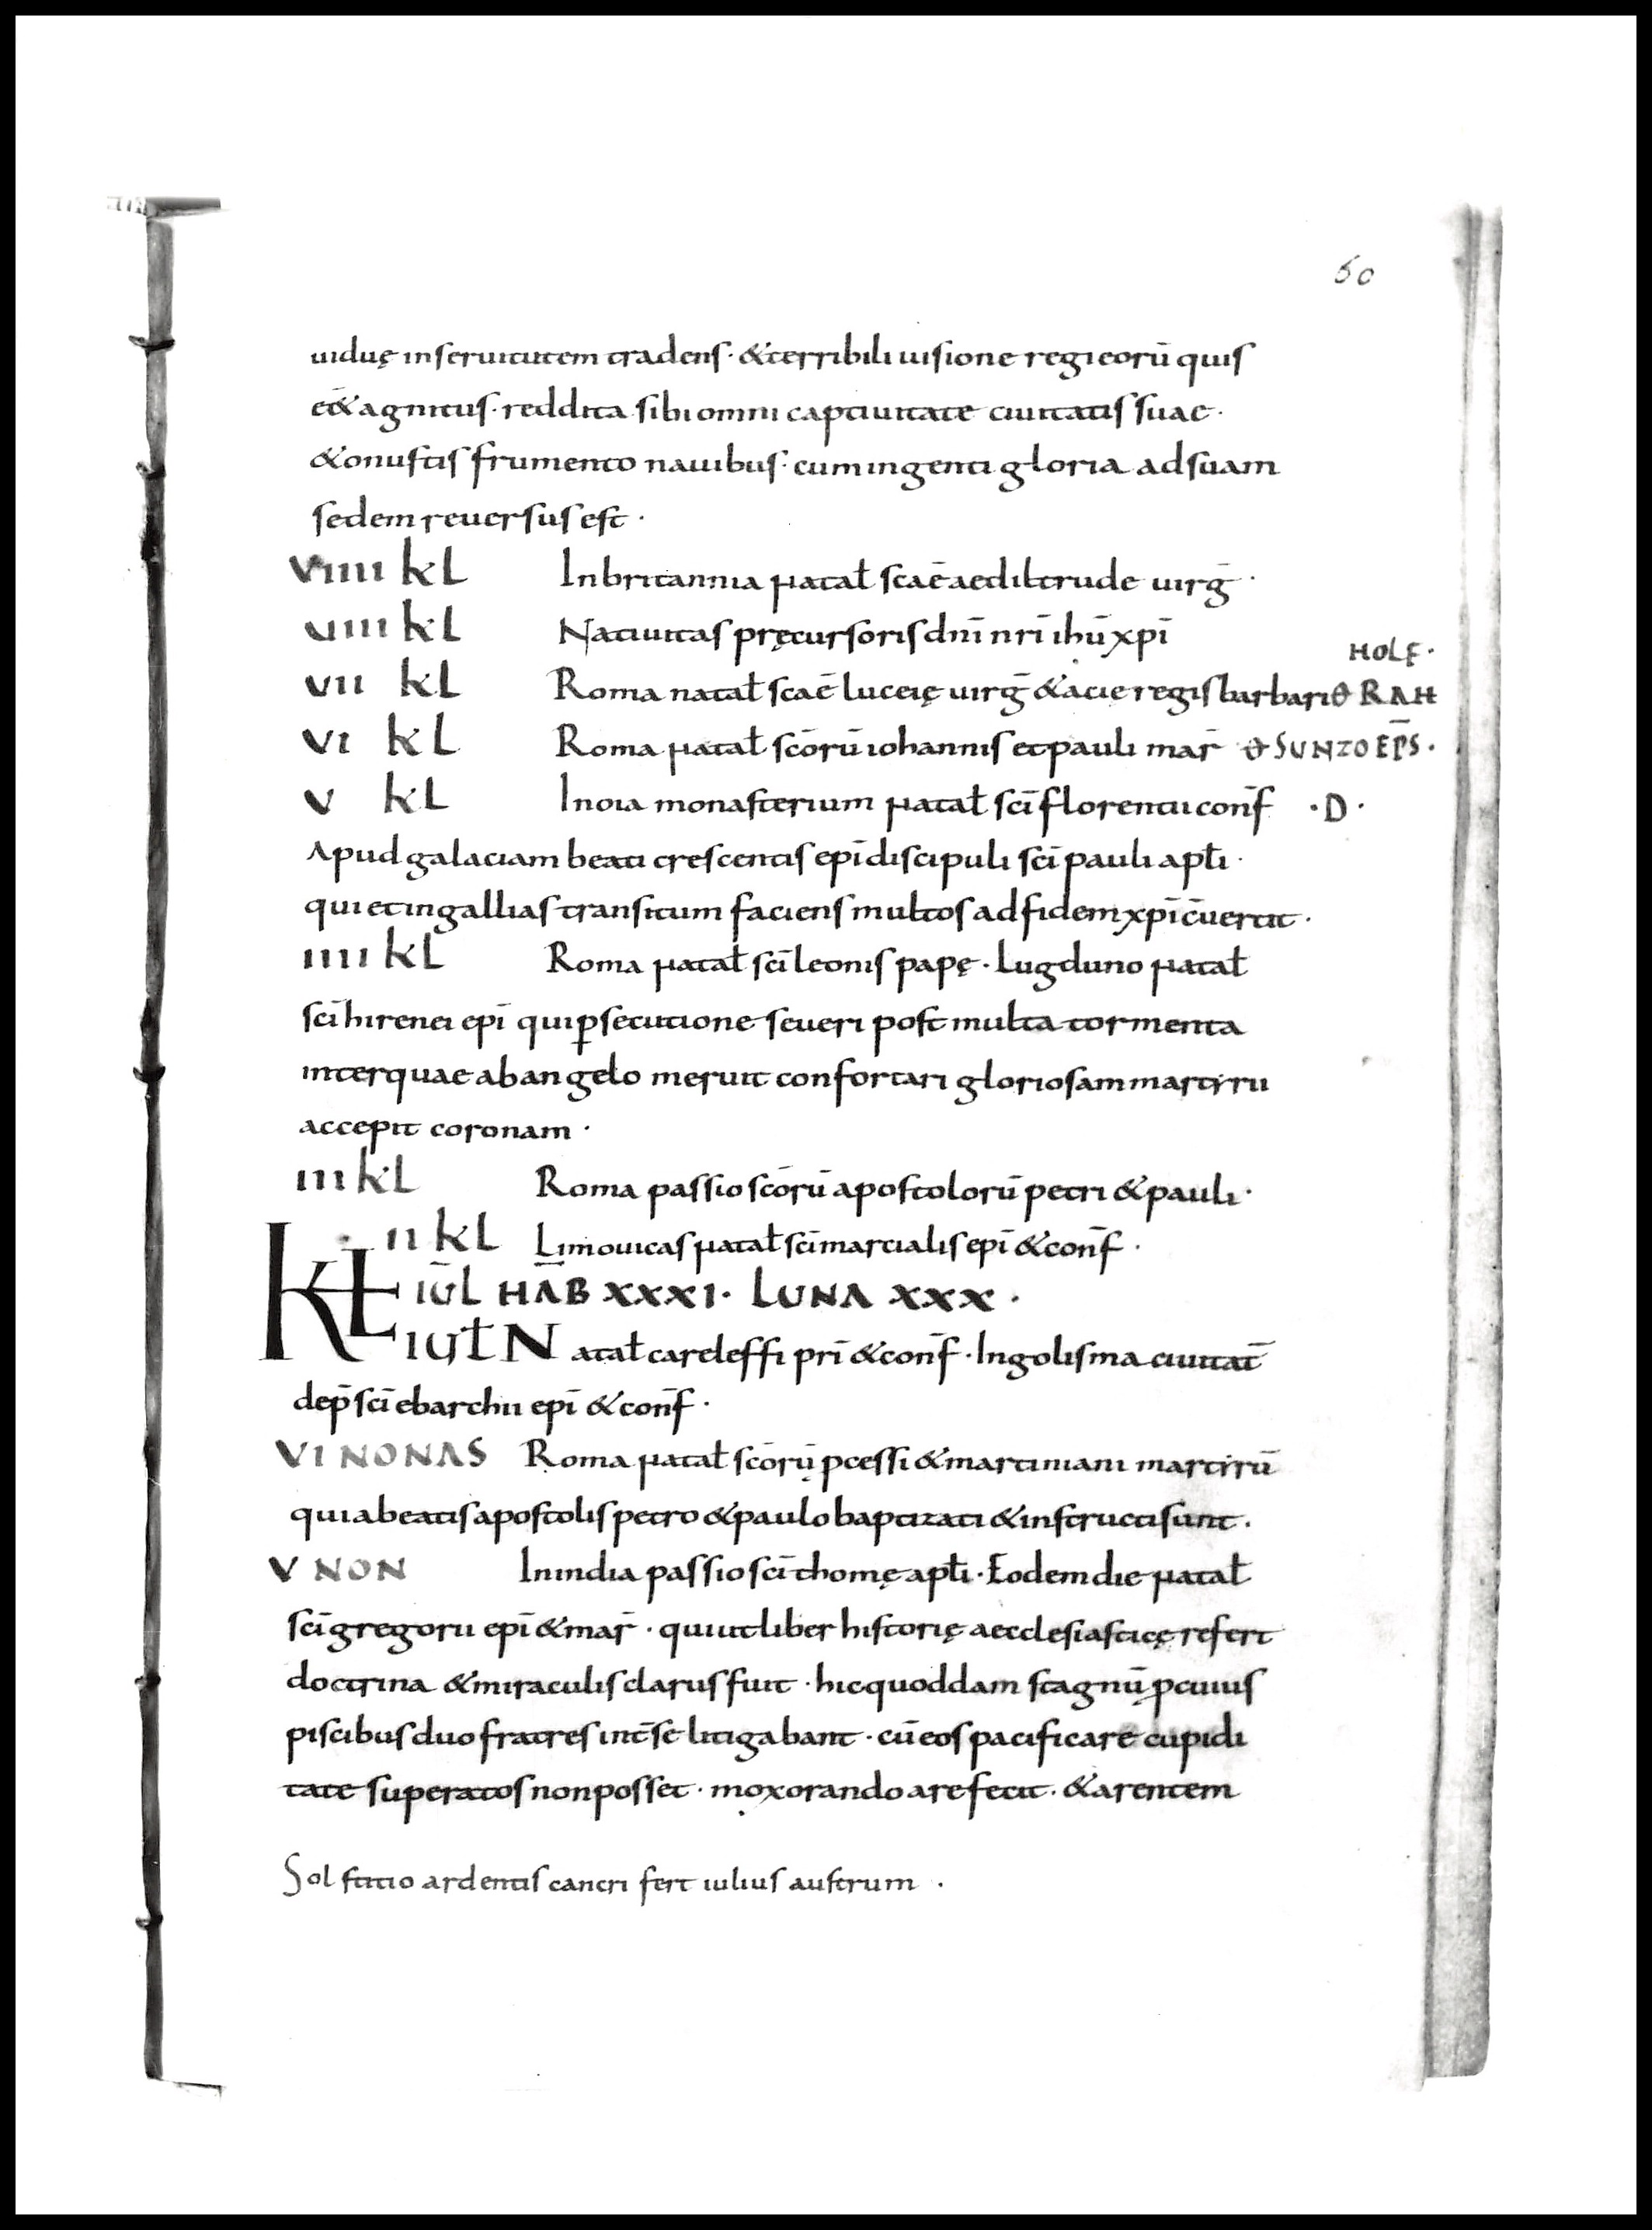 60
uiduę inseruitutem tradens · &terribili uisione regi eorū quis
eēt agnitus · reddita sibi omni captiuitate ciuitatis suae ·
&onustis frumento nauibus · cum ingenti gloria ad suam
sedem reuersus est ·
VIIII KL In britannia natał scaē aediltrude uirḡ ·
VIII KL Natiuitas pręcursoris dnī nrī ihū xpī
HOLĘ ·
VII KL Roma natał scaē luceię uirḡ &acie regis barbari ϑ RAH
VI KL Roma natał scōrū iohannis et pauli mar̄ ϑ SUNZO EP̄S ·
V KL Inoia monasterium natał scī florentii conf̄ · D ·
Apud galaciam beati crescentis epī discipuli scī pauli apłi ·
qui et in gallias transitum faciens multos ad fidem xpī c̄uertit ·
IIII KL Roma natał scī leonis papę · Lugduno natał
scī hirenei epī qui ꝑsecutione seueri post multa tormenta
interquae ab angelo meruit confortari gloriosam martyrii
accepit coronam ·
III KL Roma passio scōrū apostolorū petri &pauli ·
II KL Limouicas natał scī marcialis epī &conf̄ ·
KŁ IŪL HĀB XXXI · LUNA XXX ·
IUŁ Natał careleffi prī &conf̄ · Ingolisma ciuitat̄
dep̄ scī ebarchii epī &conf̄ ·
VI NONAS Roma natał scōrū ꝓcessi &martiniani martyrū
qui a beatis apostolis petro &paulo baptizati &instructi sunt ·
V NON In india passio scī thomę apłi · Eodem die natał
scī gregorii epī &mar̄ · qui ut liber historię aecclesiasticę refert
doctrina &miraculis clarus fuit · hic quoddam stagnū ꝓ cuius
piscibus duo fratres int̄ se litigabant · cū eos pacificare cupidi
tate superatos non posset · mox orando arefecit · &arentem
Solstitio ardentis cancri fert iulius austrum ·